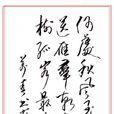 何處秋風至
送雁群朝
樹孤客最